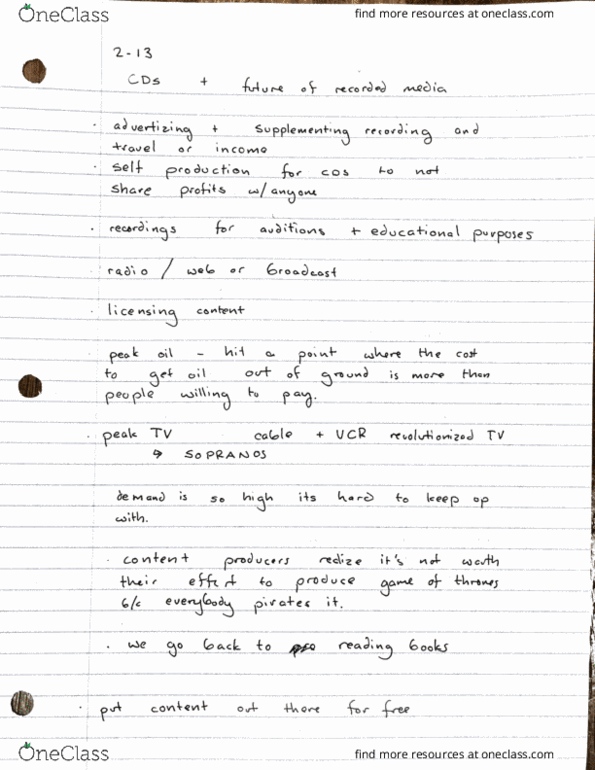 OneClass
find more resources at oneclass.com
2-13
CDs + future of recorded media
· advertizing + supplementing recording and
travel or income
· self production for cds to not
share profits w/anyone
· recordings for auditions + educational purposes
radio / web or broadcast
· licensing content
peak oil - hit a point where the cost
to get oil out of ground is more than
people willing to pay.
· peak TV cable + VCR revolutionized TV
↳ SOPRANOS
demand is so high its hard to keep up
with.
· content producers realize it's not worth
their effort to produce game of thrones
b/c everybody pirates it.
· we go back to reading books
· put content out there for free
OneClass
find more resources at oneclass.com